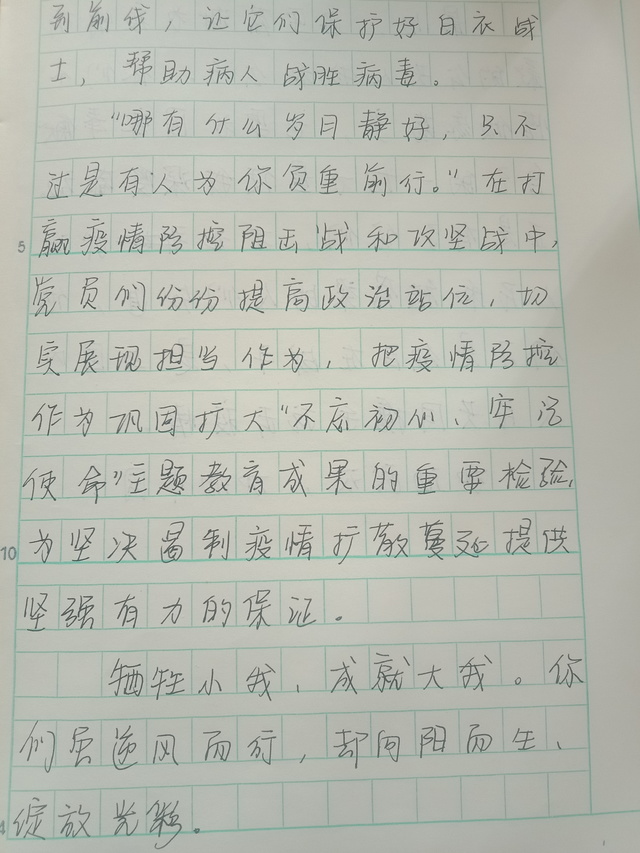 到前线，让它们保护好白衣战
士，帮助病人战胜病毒。
“哪有什么岁月静好，只不
过是有人为你负重前行。”在打
5 赢疫情防控阻击战和攻坚战中，
党员们份份提高政治站位，切
实展现担当作为，把疫情防控
作为巩固扩大“不忘初心、牢记
使命”主题教育成果的重要检验，
10 为坚决遏制疫情扩散蔓延提供
坚强有力的保证。
牺牲小我，成就大我。你
们虽逆风而行，却向阳而生、
绽放光彩。